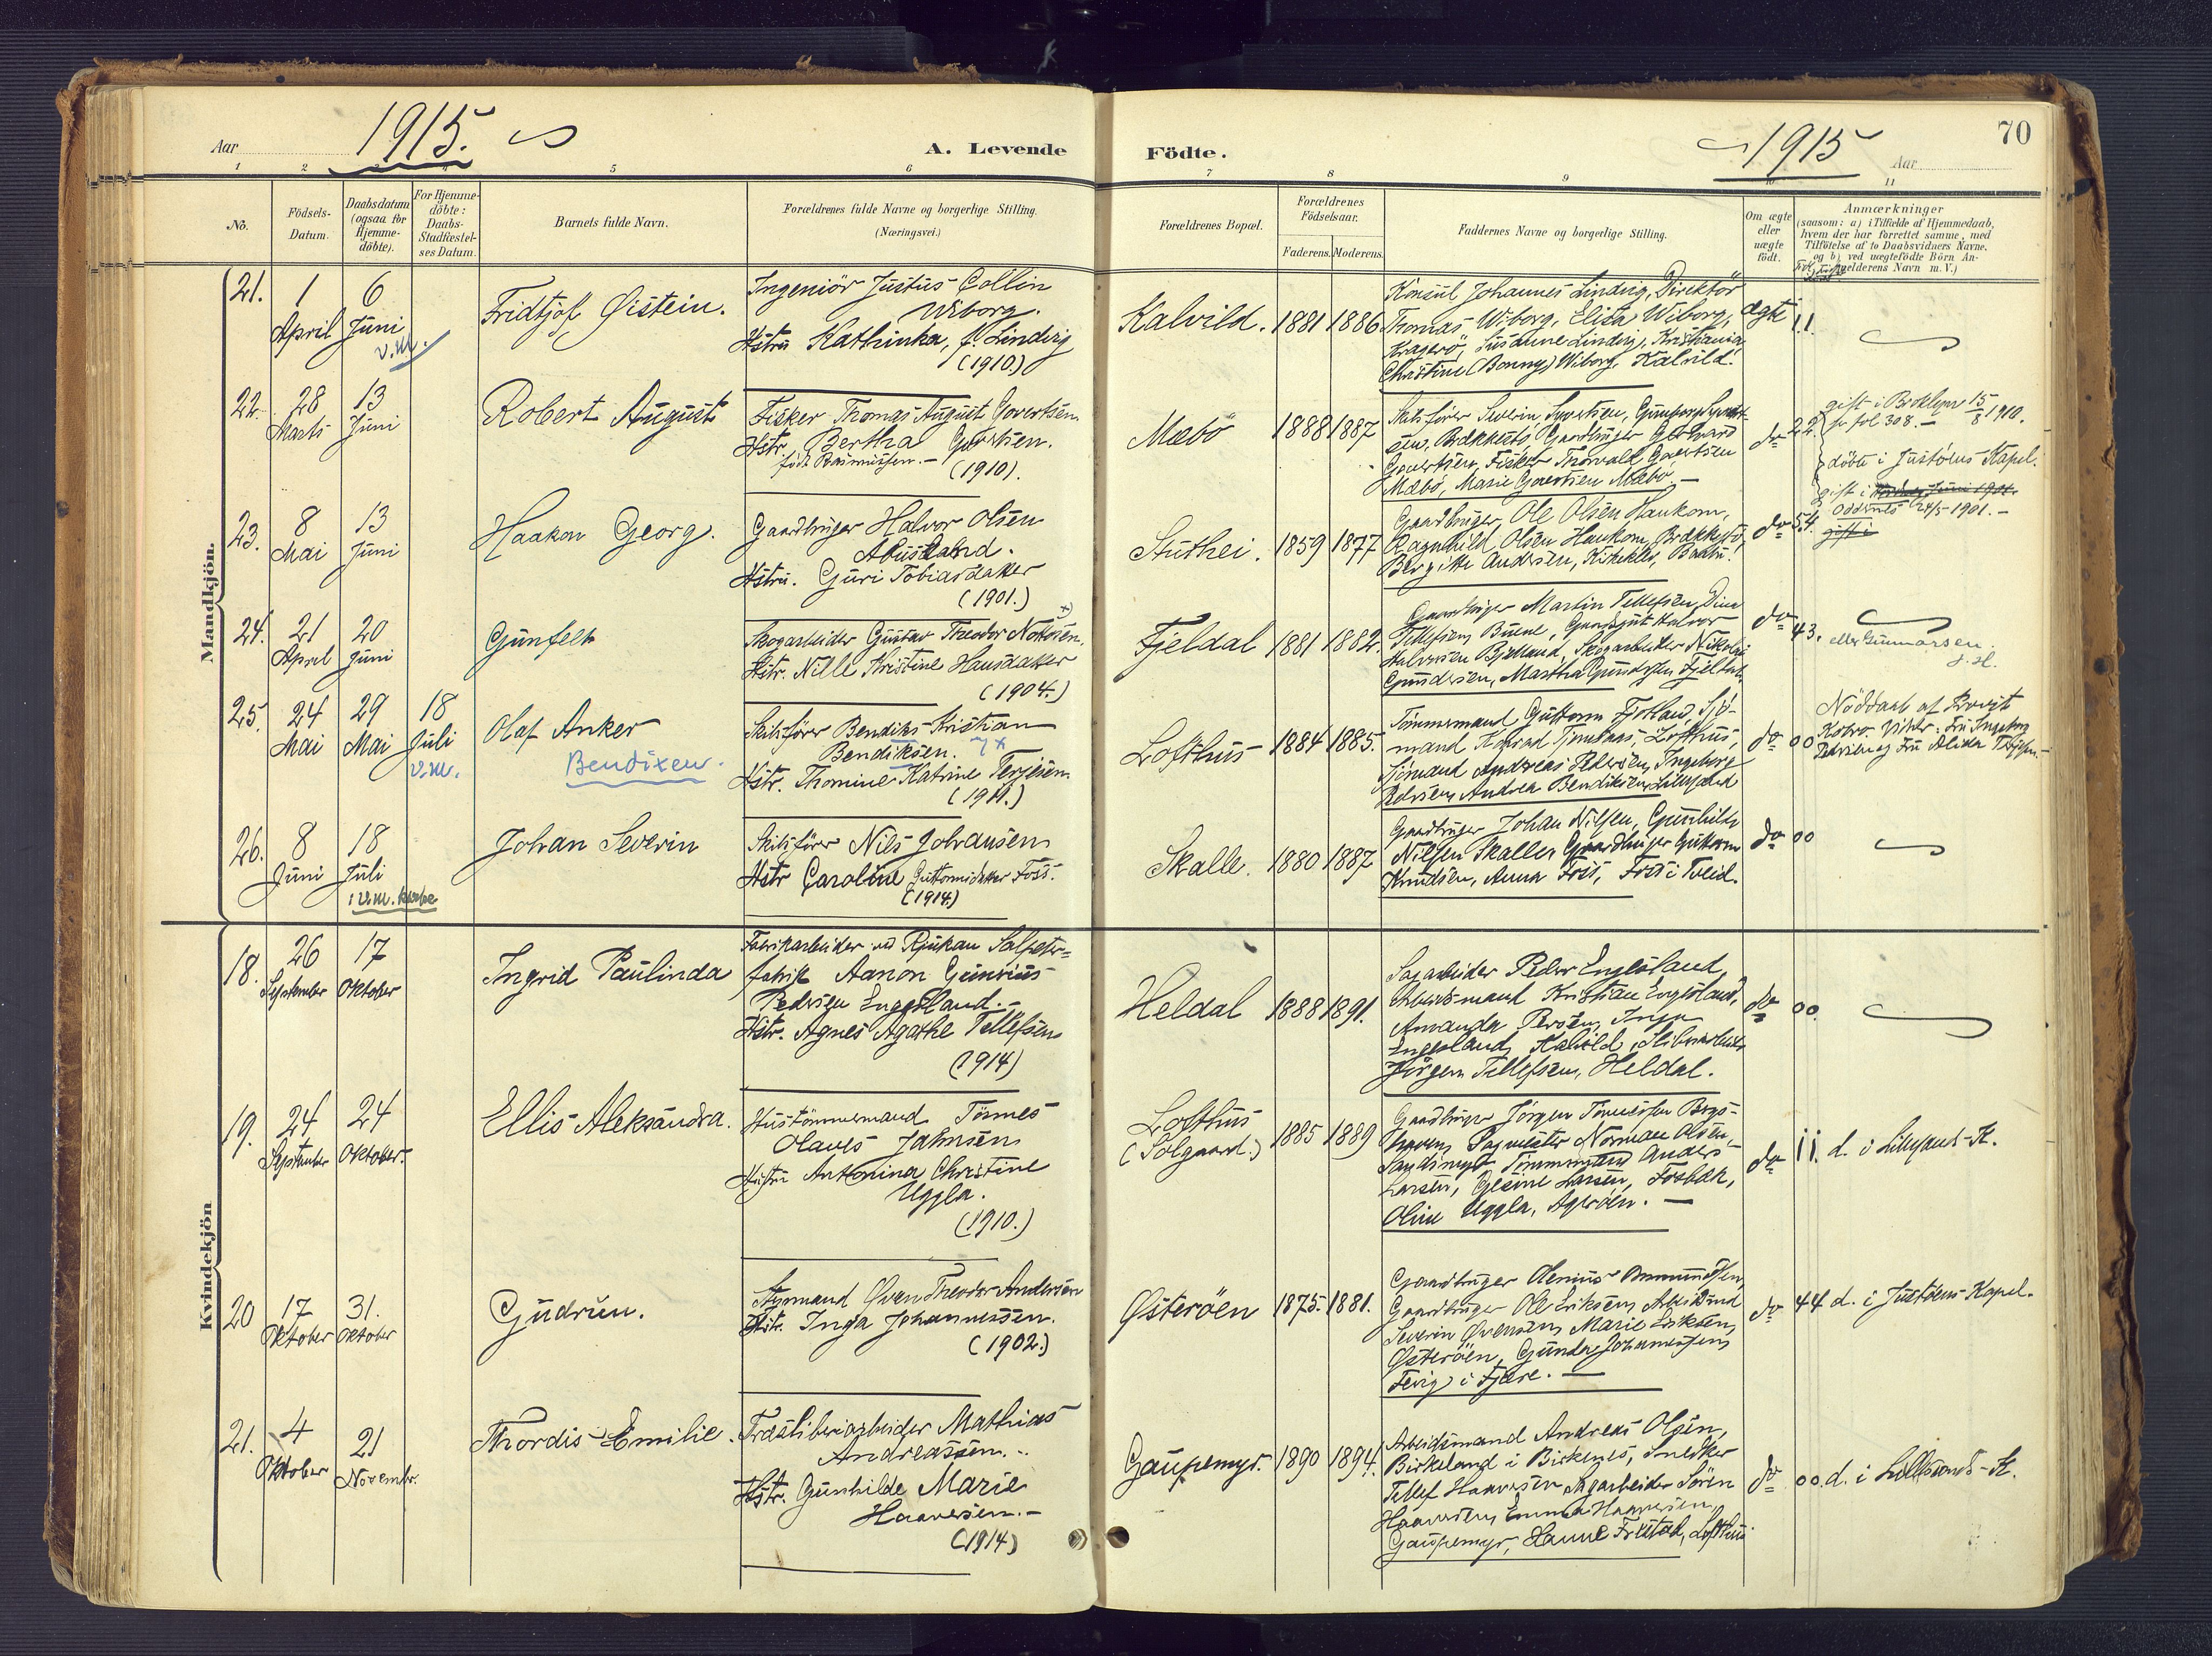 Aar 1915.
A. Levende
Födte.
1915
Aar
70
1 2 3 4 5 6 7 8 9 10 11
No.
Födsels-
Datum.
Daabsdatum
(ogsaa for
Hjemme-
döbte).
For Hjemme-
döbte:
Daabs-
Stadfæstel-
ses Datum.
Barnets fulde Navn.
Forældrenes fulde Navne og borgerlige Stilling.
(Næringsvei.)
Forældrenes Bopæl.
Forældrenes
Födselsaar.
Faderens. Moderens.
Faddernes Navne og borgerlige Stilling.
Om ægte
eller
uægte
födt.
Anmærkninger
(saasom: a) i Tilfælde af Hjemmedaab,
hvem der har forrettet samme, med
Tilföielse af to Daabsvidners Navne,
og b) ved uægtefödte Börn An-
melderens Navn m. V.)
Mandkjön.
21.
1
April
6
Juni
v.m.
Fridtjof Øistein.
Ingeniör Justus Collin
Wiborg.
Hstru Kathinka, f. Lindvig
(1910.)
Kalvild.
1881
1886
Konsul Johannes Lindvig, Direktör
Thomas Wiborg, Eliza Wiborg,
Kragerö, Susanne Lindvig, Kristiania
Christine (Bonny) Wiborg, Kalvild.
ægte
11.
22.
28
Marts
13
Juni
Robert August
Fisker Thomas August Govertsen
Hstr. Bertha Govertsen.
født Rasmussen.-
(1910).
Mæbö
1888
1887
Skibsförer Severin Syvertsen, Gunborg Syvert-
sen, Brækkestö, Gaardbruger Gerhard
Govertsen, Fisker Thorvald Govertsen
Mæbö, Marie Govertsen Mæbö.-
do
22.
gift i Brooklyn 15/8 1910.
fol 308.-
döbt i Justöens Kapel.
23.
8
Mai
13
Juni
Haakon Georg.
Gaardbruger Halvor Olsen
Hstru. Guri Tobiasdatter
(1901.)
Stuthei.
1859
1877
Gaardbruger Ole Olsen Haukom,
Ragnhild Olsen Haukom, Brækkestö,
Bergitte Andersen,
do
54.
gift i
Oddernes 24/5 1901.-
gift i
24.
21
April
20
Juni
Gunfelt
Skogarbeider Gustav Theodor
Hstr. Nille Kristine Hansdatter
(1904.)
Fjeldal
1881
1882.
Gaardbruger Martin Tellefsen, Dina
Tellefsen Buene, Gaardgut Halvor
Halvorsen Bjelland, Skogarbeider Nikolai
Gundersen, Martha Gundersen Fjeldal,
do
43.
eller Gunnarsen.
25.
24
Mai
29
Mai
18
Juli
v.m.
Olaf Anker
Bendixen.
Skibsförer Bendiks Kristian
Bendiksen.
Hstr. Thomine Katrine Terjesen
(1911.)
Lofthus
1884
1885.
Tömmermand Guttorm Fjotland, Sjö-
mand Konrad Lofthus,
Sjömand Andreas Pedersen, Ingeborg
Pedersen, Andrea Bendiksen, Lillesand
do
00
Nöddaab af Provst
Fru Ingeborg
Pedersen og Fru Alida
26.
8
Juni
18
Juli
i v.m. kirke
Johan Severin
Skibsförer Nils Johansen
Hstr Caroline Guttormsdatter Foss.
(1914.)
Skalle.
1880
1887
Gaardbruger Johan Nilsen, Gunhild
Nilsen Skalle, Gaardbruger Guttorm
Knudsen, Anna Foss, Foss i Tveid.
do
00
Kvindekjön
18.
26
September
17
Oktober
Ingrid Paulinda
Fabrikarbeider ved Rjukan Salpeter-
fabrik Aanon Gunvius
Pedersen Engesland.-
Hstr. Agnes Agathe Tellefsen
(1914)
Heldal
1888
1891.
Sagarbeider Peder Engesland,
Arbeidsmand Kristian Engesland,
Amanda Persen, Inga
Engesland,
Jörgen Tellefsen, Heldal.
do
00.
19.
24
September
24
Oktober.
Ellis Aleksandra.
Hustömmermand Tömes
Olaves Jahnsen
Hustru Antonina Christine
Uggla.
(1910.)
Lofthus
(Solgaard.)
1885
1889
Gaardbruger Jörgen
Sagmester Norman Olsen,
Tömmermand Anders
Larsen, Gesine Larsen, Fosbæk,
Oline Uggla, Agerøen.-
do
11.
d. i Lillesand-K.
20
17
Oktober
31.
Oktober
Gudrun.
Styrmand Øven Theodor Andersen
Hstr. Inga Johannessen.
(1902.)
Østeröen
1875.
1881.
Gaardbruger Olenius
Gaardbruger Ole Eriksen, Arbeidsmd
Severin Ovensen, Marie Eriksen,
Østeröen, Gunda Johannessen,
Fevig i Fjære.-
do
44
d. i Justöens-Kapel.
21.
4
Oktober
21
November.
Thordis Emilie.
Træsliberiarbeider Mathias
Andreassen.-
Hstr. Gunhilde Marie
Haavesen.-
(1914)
Gaupemyr.
1890
1894.
Arbeidsmand Andreas Olsen,
Birkeland i Birkenes, Snedker
Tellef Haavesen Sagarbeider Sören
Haavesen, Emma Haavesen,
Gaupemyr, Hanne Fristad, Lofthus.
do
00.
d. i Lillesands-K.